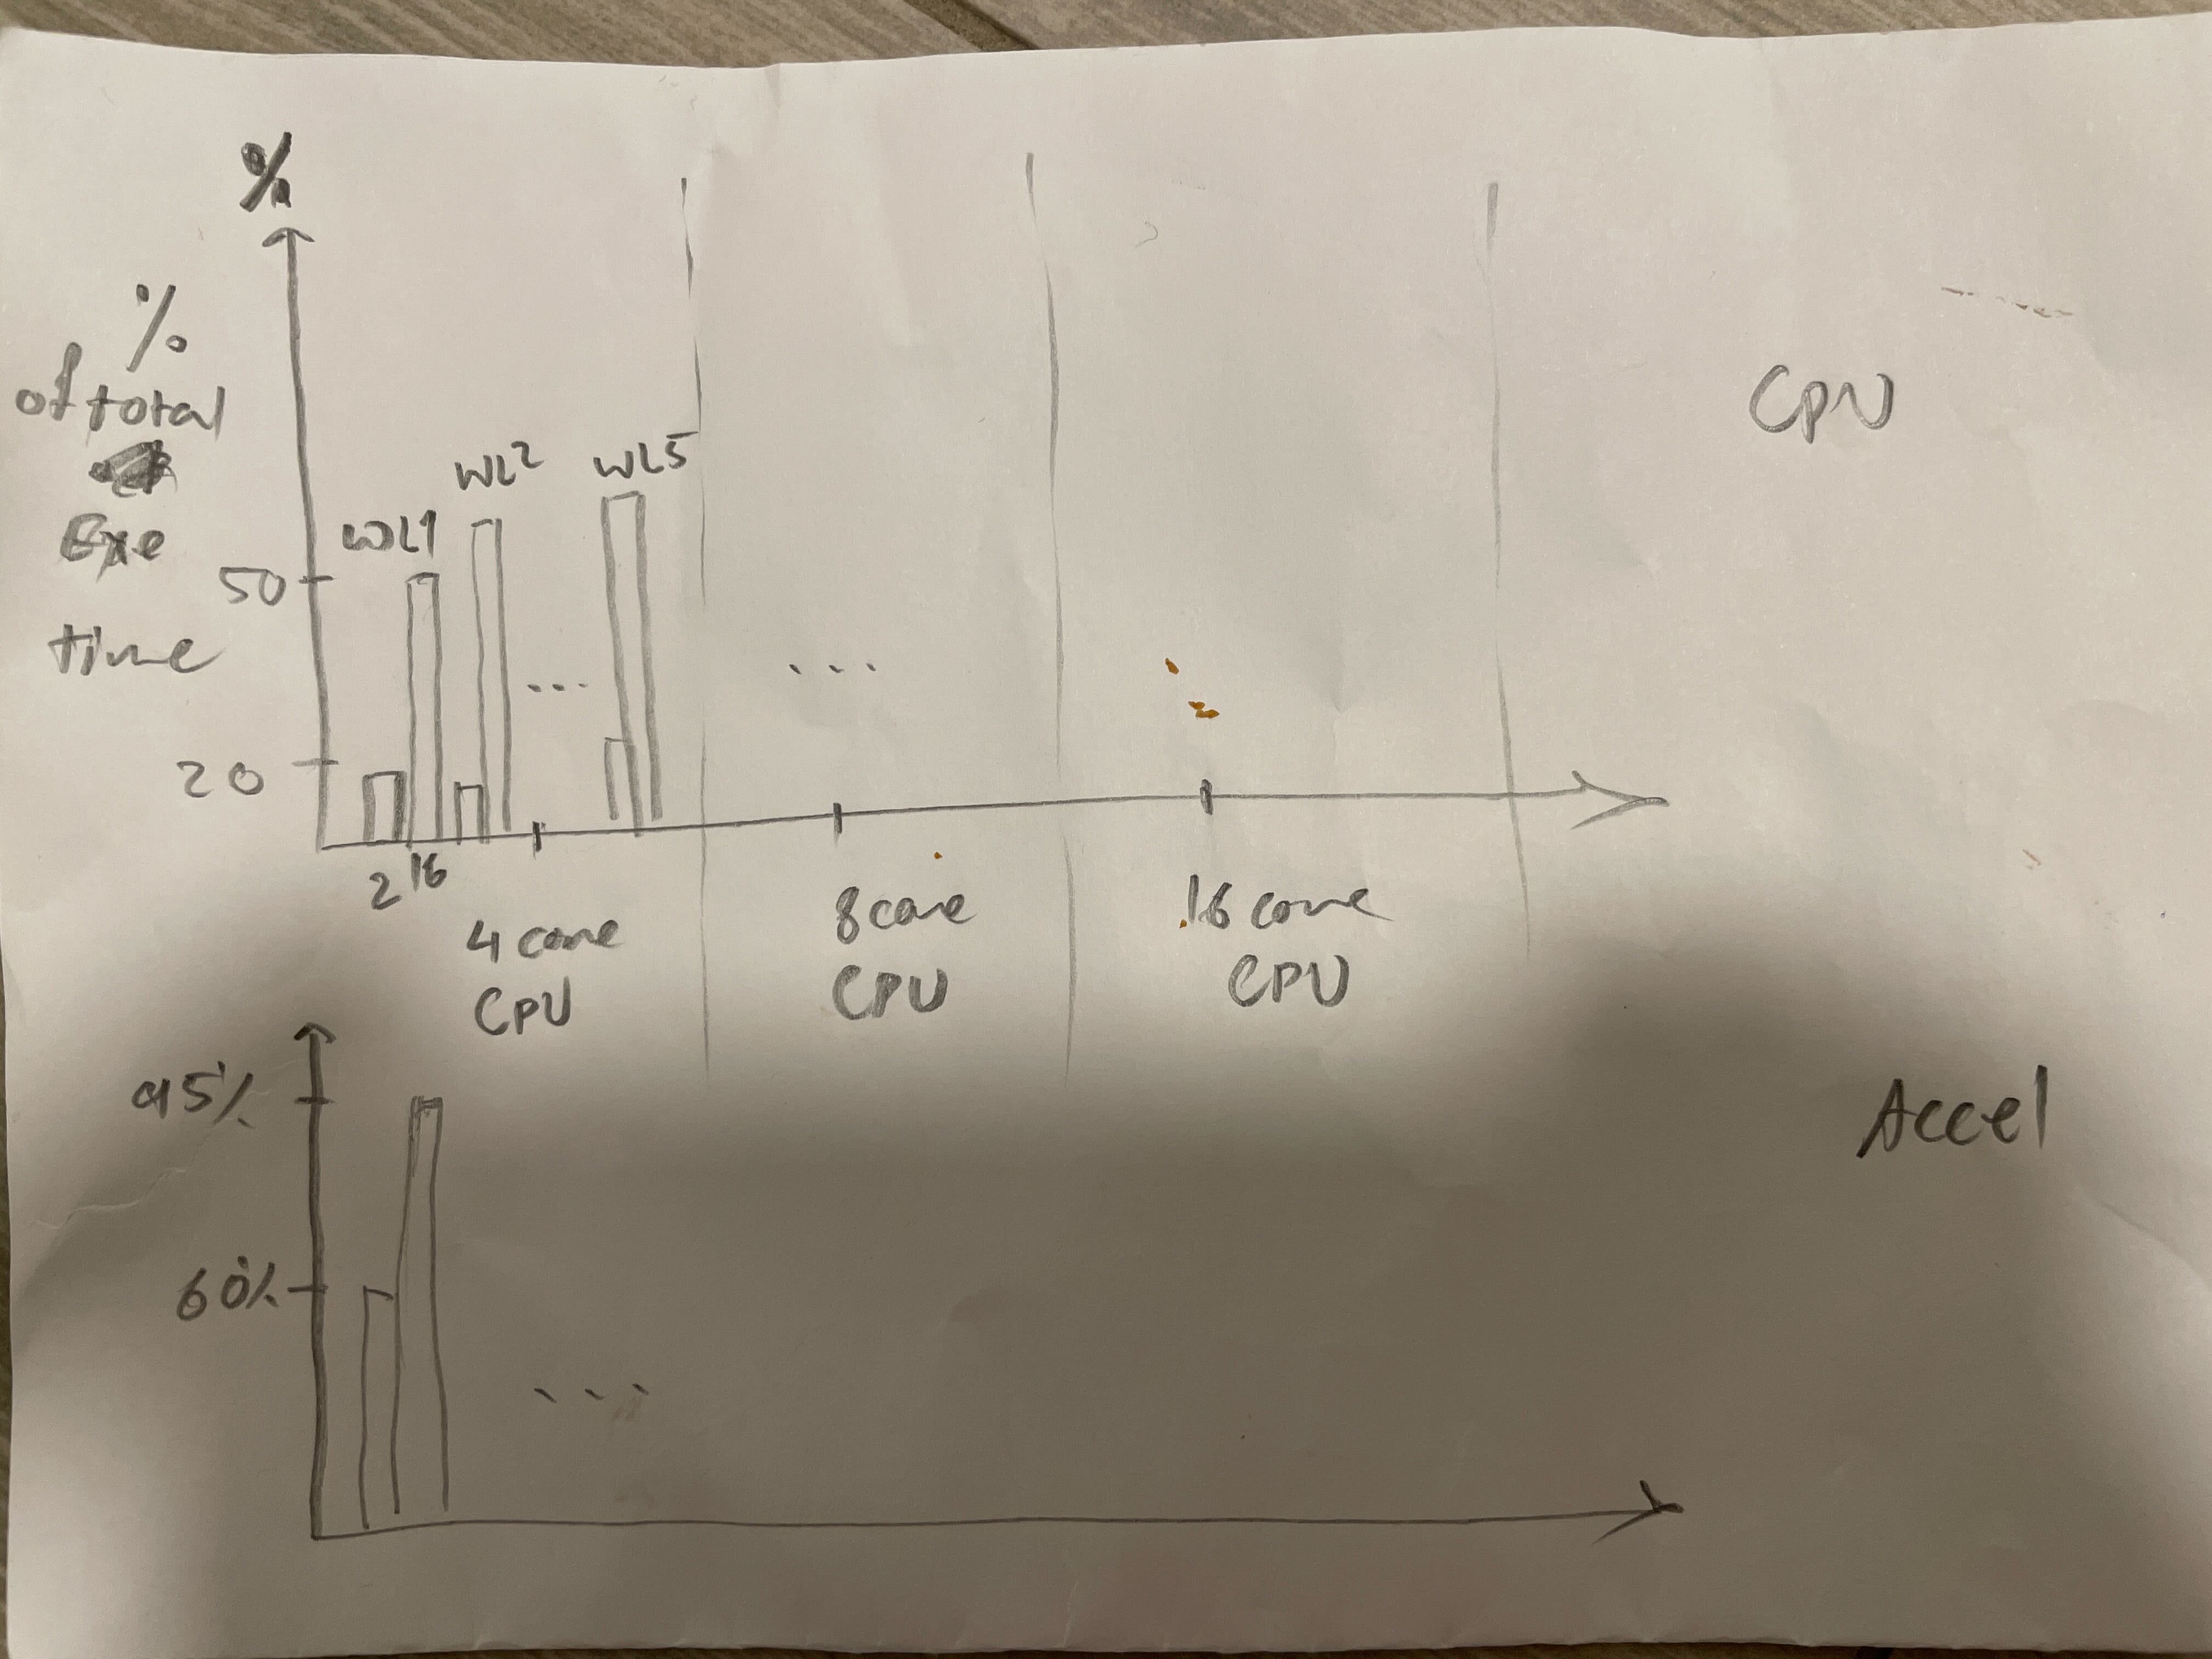 %
%
of total
Exe
time
50
20
WL1
WL2
WL5
...
...
2 16
4 core
CPU
8 core
CPU
16 core
CPU
CPU
95%
60%
...
Accel